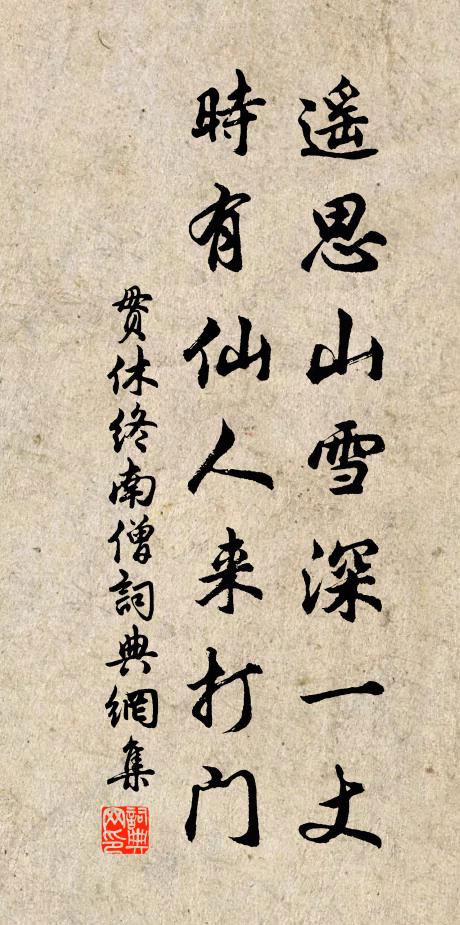 遥思山雪深一丈
時有仙人来打门
贯休终南僧詞典網集
詞典
网印